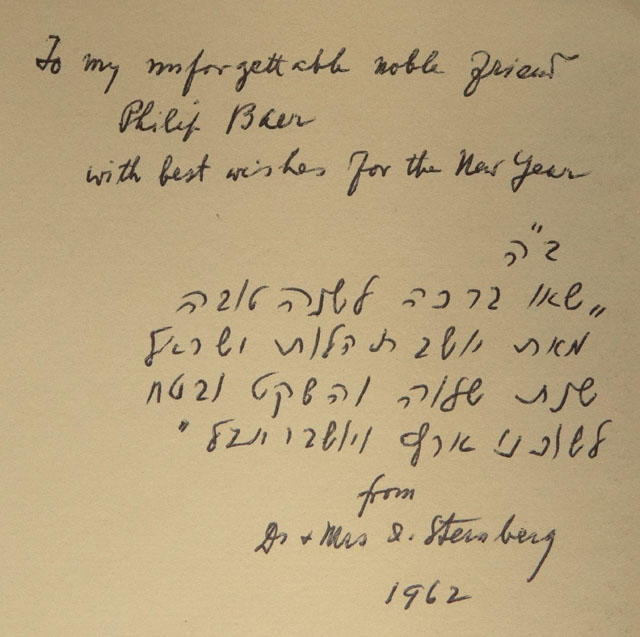 To my unforgettable noble friend
Philip Baer
with best wishes for the New Year
ב"ה
„שאו ברכה לשנה טובה
מאת יושב תהלות ישראל
שנת שלוה והשקט ובטח
לשוכני ארץ ויושבי תבל"
from
Dr + Mrs S. Sternberg
1962